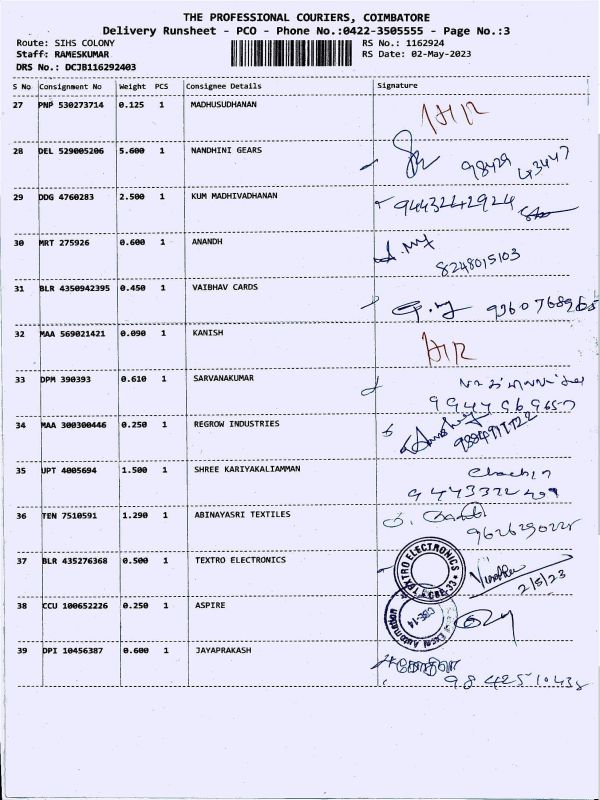 THE PROFESSIONAL COURIERS, COIMBATORE
Delivery Runsheet - PCO - Phone No.:0422-3505555 - Page No.:3
Route: SIHS COLONY RS No.: 1162924
Staff: RAMESKUMAR RS Date: 02-May-2023
DRS No.: DCJB116292403
S No Consignment No Weight PCS Consignee Details Signature
27 PNP 530273714 0.125 1 MADHUSUDHANAN
28 DEL 529005206 5.600 1 NANDHINI GEARS 98429 43447
29 DDG 4760283 2.500 1 KUM MADHIVADHANAN 9443242924
30 MRT 275926 0.600 1 ANANDH
8248015103
31 BLR 4350942395 0.450 1 VAIBHAV CARDS 9360768965
32 MAA 569021421 0.090 1 KANISH
33 DPM 390393 0.610 1 SARVANAKUMAR
34 MAA 300300446 0.250 1 REGROW INDUSTRIES
35 UPT 4005694 1.500 1 SHREE KARIYAKALIAMMAN
36 TEN 7510591 1.290 1 ABINAYASRI TEXTILES
37 BLR 435276368 0.500 1 TEXTRO ELECTRONICS TEXTRO ELECTRONICS CBE-33 2/5/23
38 CCU 100652226 0.250 1 ASPIRE CBE-14
39 DPI 10456387 0.600 1 JAYAPRAKASH
9842510435